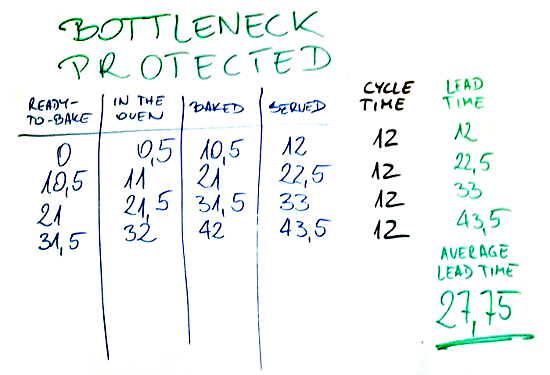 BOTTLENECK
PROTECTED
READY-TO-BAKE IN THE OVEN BAKED SERVED CYCLE TIME LEAD TIME
0 0,5 10,5 12 12 12
10,5 11 21 22,5 12 22,5
21 21,5 31,5 33 12 33
31,5 32 42 43,5 12 43,5
AVERAGE
LEAD TIME
27,75